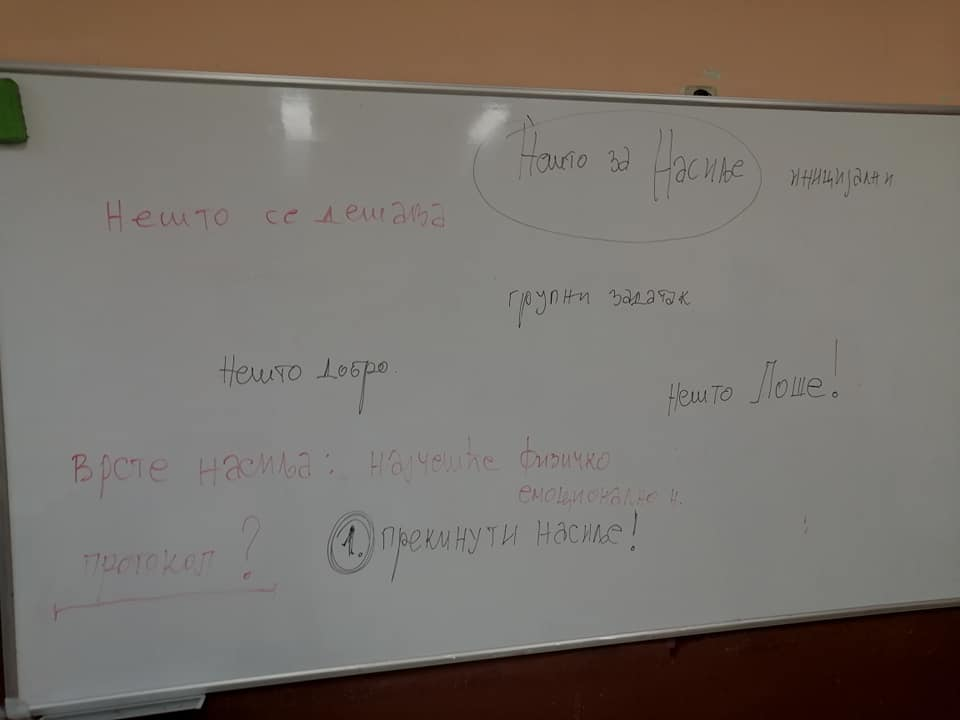 Нешто за Насиље
иницијални
Нешто се дешава
групни задатак
Нешто добро.
Нешто Лоше!
Врсте насиља: најчешће физичко
емоционално н.
протокол?
1. прекинути насиље!